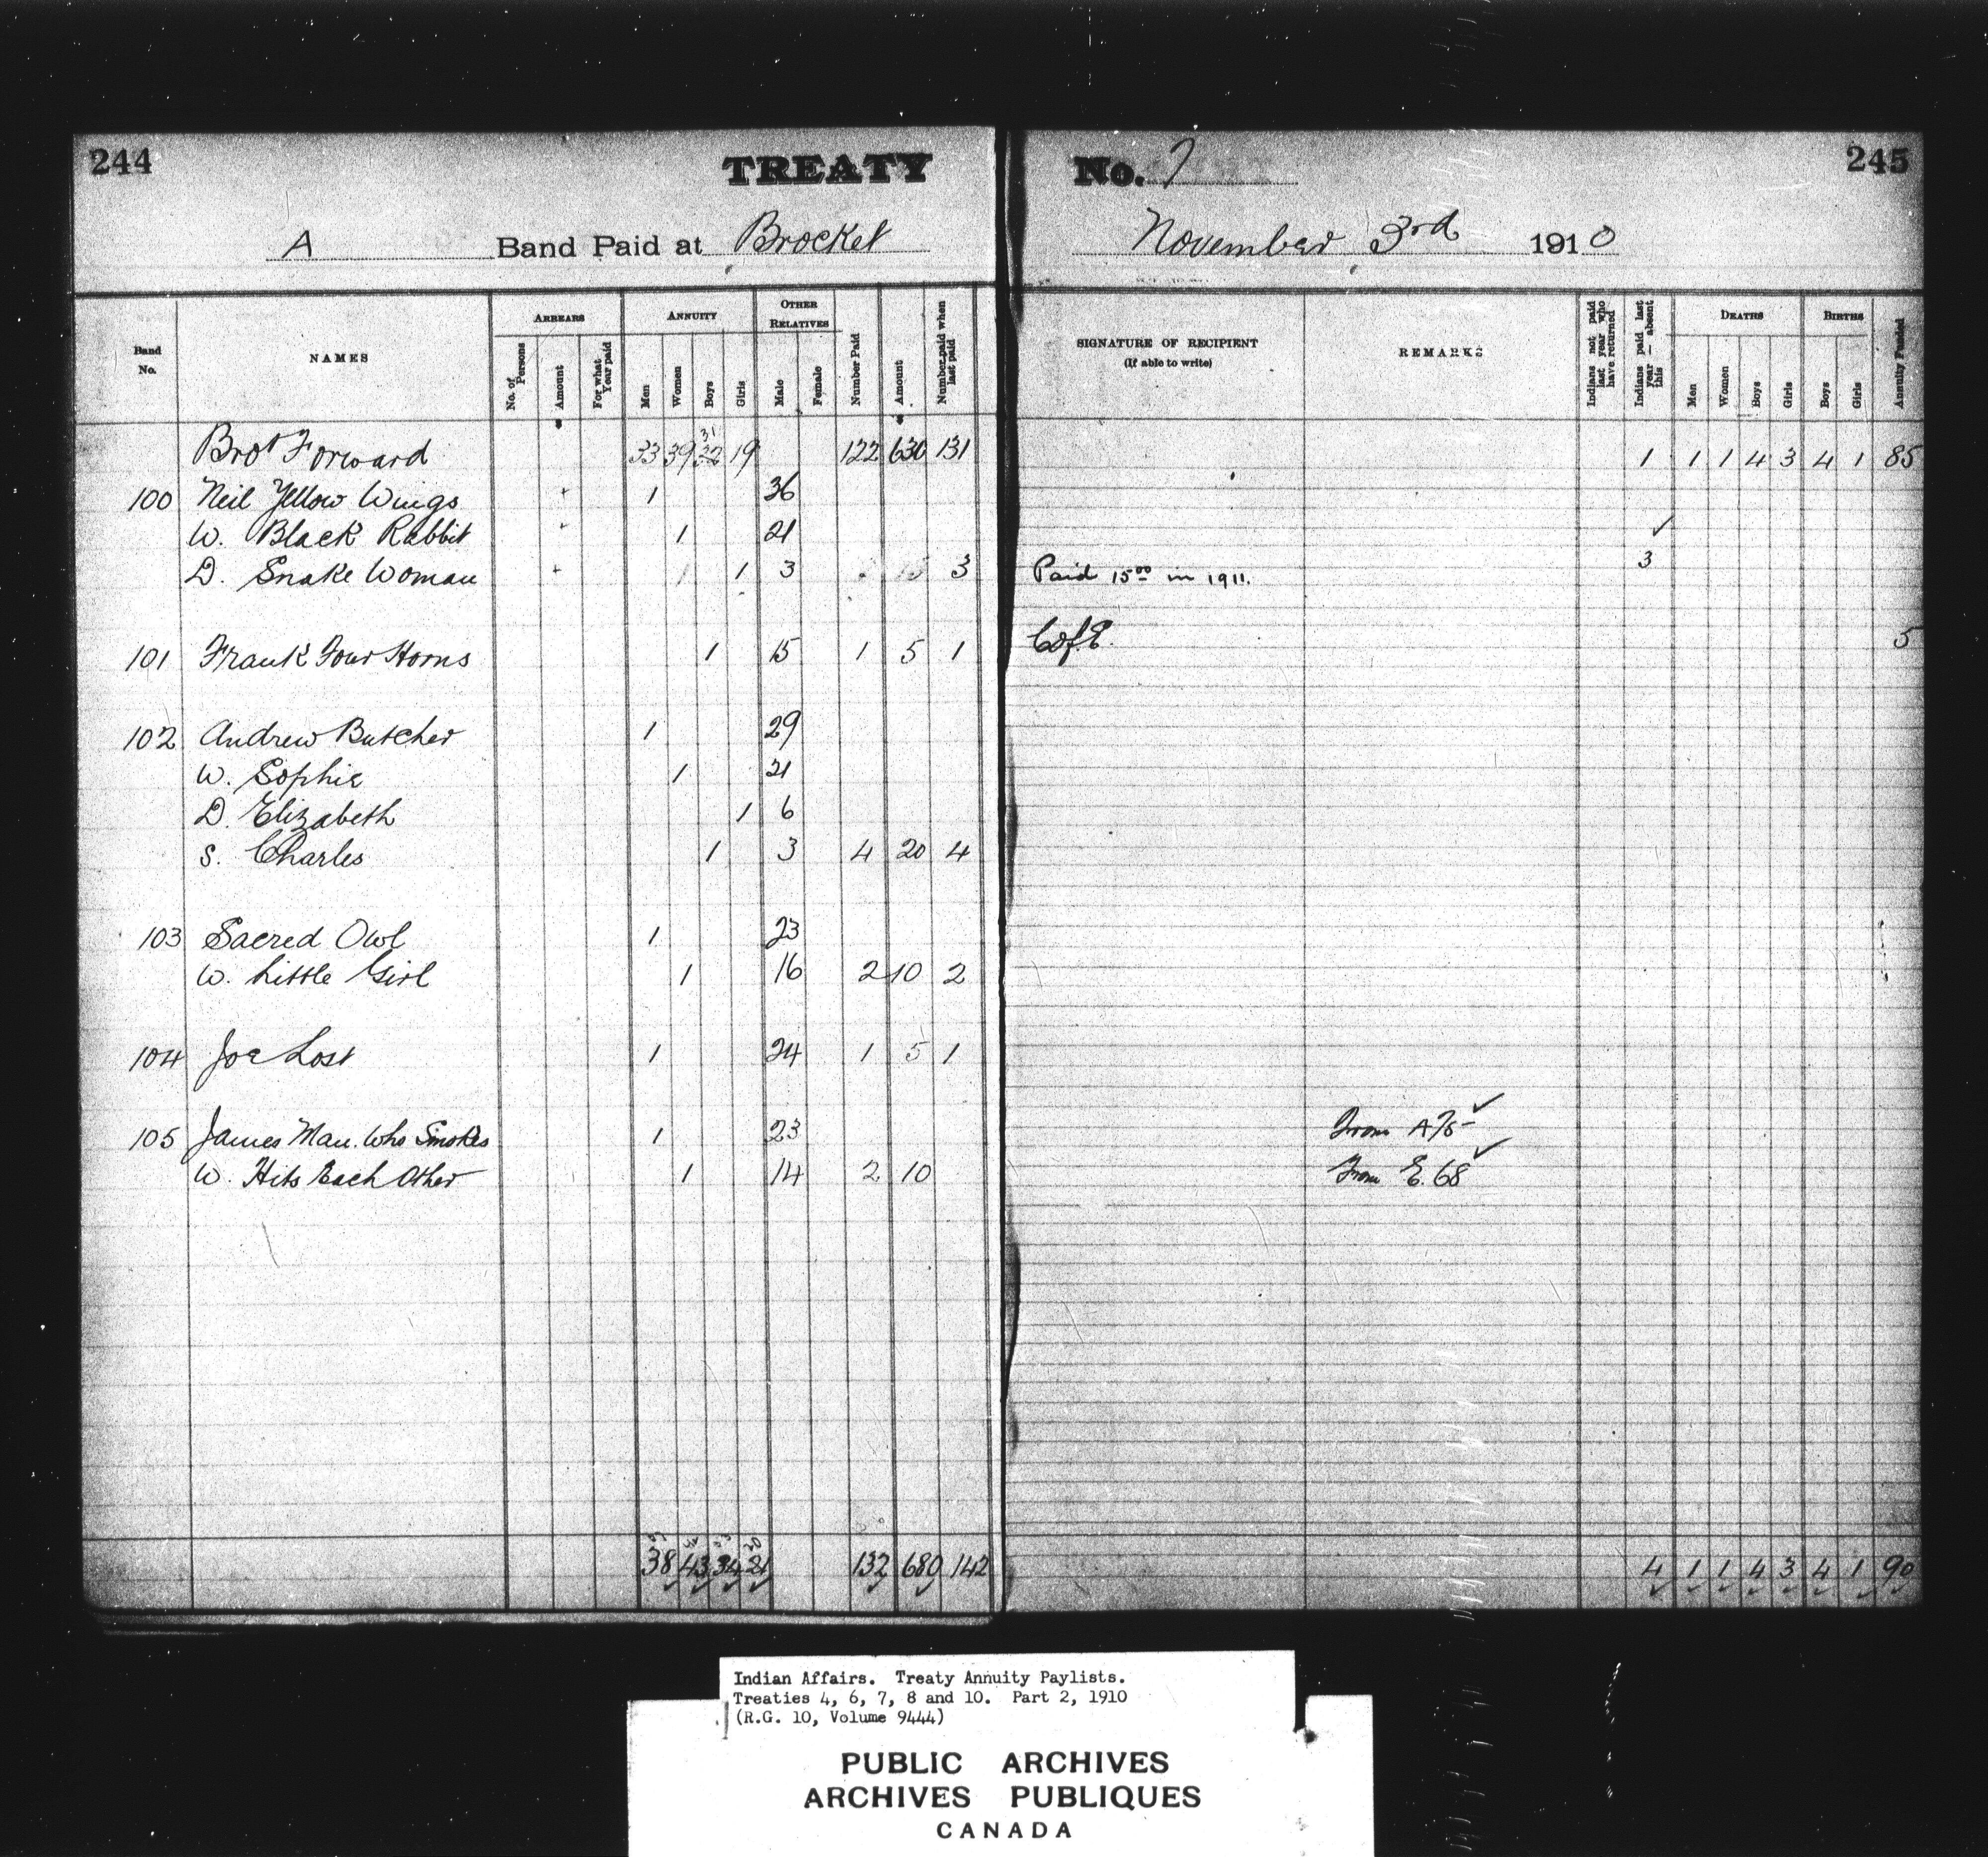 244 TREATY No. 7 245
A Band Paid at Brocket November 3rd 1910
Band No. NAMES ARREARS No. of Persons Amount For what Year paid ANNUITY Men Women Boys Girls OTHER RELATIVES Male Female Number Paid Amount Number paid when last paid SIGNATURE OF RECIPIENT (If able to write) REMARKS Indians not paid last year who have returned Indians paid last year — absent this DEATHS Men Women Boys Girls BIRTHS Boys Girls Annuity Funded
31
Brot Forward 33 39 32 19 122 630 131 1 1 1 4 3 4 1 85
100 Neil Yellow Wings 1 36
W. Black Rabbit 1 21 ✓
D. Snake Woman 1 1 3 15 3 Paid 15⁰⁰ in 1911. 3
101 Frank Four Horns 1 15 1 5 1 C of E. 5
102 Andrew Butcher 1 29
W. Sophie 1 21
D. Elizabeth 1 6
S. Charles 1 3 4 20 4
103 Sacred Owl 1 23
W. Little Girl 1 16 2 10 2
104 Joe Lost 1 24 1 5 1
105 James Man Who Smokes 1 23 From A 75 ✓
W. Hits Each Other 1 14 2 10 From E. 68 ✓
38 43 34 21 132 680 142 4 1 1 4 3 4 1 90
Indian Affairs. Treaty Annuity Paylists.
Treaties 4, 6, 7, 8 and 10. Part 2, 1910
(R.G. 10, Volume 9444)
PUBLIC ARCHIVES
ARCHIVES PUBLIQUES
CANADA